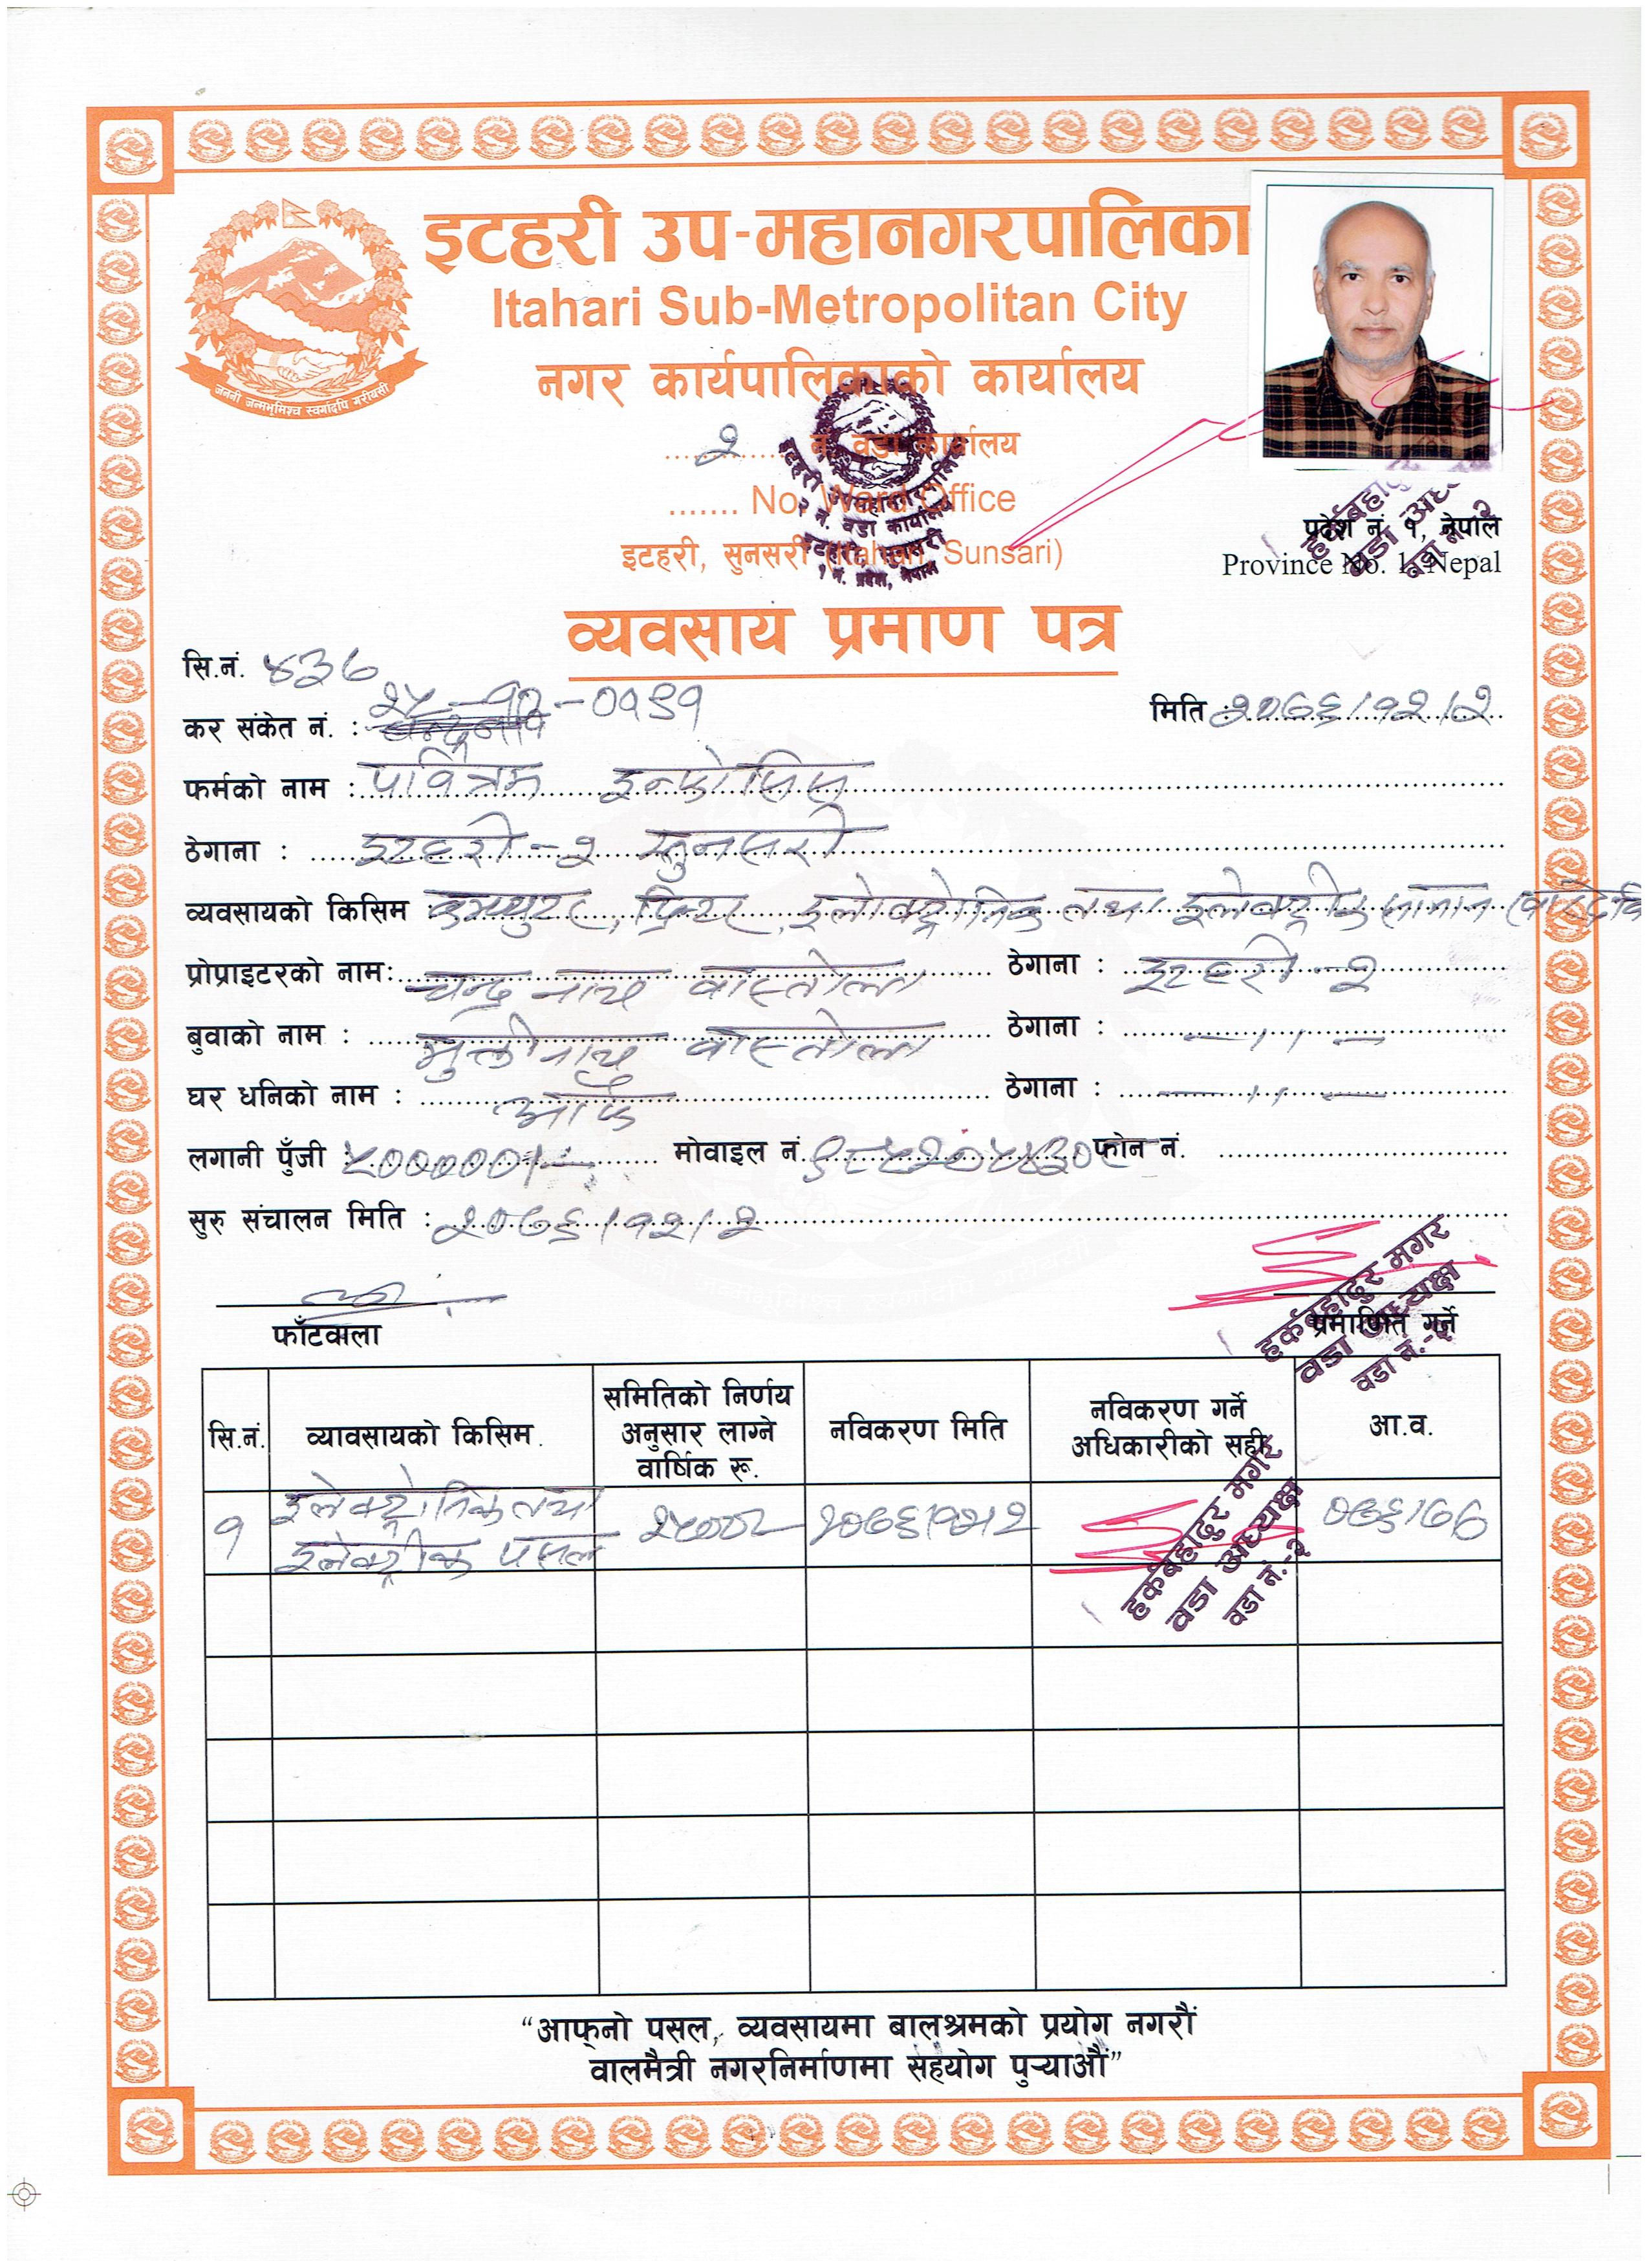 इटहरी उप-महानगरपालिका
Itahari Sub-Metropolitan City
नगर कार्यपालिकाको कार्यालय
२ नं. वडा कार्यालय
....... No. Ward Office
इटहरी, सुनसरी (Itahari, Sunsari)
जननी जन्मभूमिश्च स्वर्गादपि गरीयसी
प्रदेश नं. १, नेपाल
Province No. 1, Nepal
व्यवसाय प्रमाण पत्र
सि.नं. ४३७
कर संकेत नं. : २५-१२-०१९१
मिति : २०७६/१२/२
फर्मको नाम : पवित्रम इन्फोसिस
ठेगाना : इटहरी-२ सुनसरी
व्यवसायको किसिम कम्प्युटर, प्रिन्टर, इलेक्ट्रोनिक तथा इलेक्ट्रीक सामान
प्रोप्राइटरको नाम: चन्द्र नाथ वास्तोला ठेगाना : इटहरी-२
बुवाको नाम : मुक्तीनाथ वास्तोला ठेगाना : —,,—
घर धनिको नाम : आफै ठेगाना : —,,—
लगानी पुँजी : ५०००००।- मोवाइल नं. फोन नं.
सुरु संचालन मिति : २०७६/१२/२
फाँटवाला
प्रमाणित गर्ने
हर्कबहादुर मगर
वडा अध्यक्ष
वडा नं.-२
सि.नं. व्यावसायको किसिम समितिको निर्णय अनुसार लाग्ने वार्षिक रू. नविकरण मिति नविकरण गर्ने अधिकारीको सही आ.व.
१ इलेक्ट्रोनिक तथा इलेक्ट्रीक पसल २५००।- २०७६/१२/२ ०७६/७७
हर्कबहादुर मगर
वडा अध्यक्ष
वडा नं.-२
“आफ्नो पसल, व्यवसायमा बालश्रमको प्रयोग नगरौं
वालमैत्री नगरनिर्माणमा सहयोग पुऱ्याऔं”